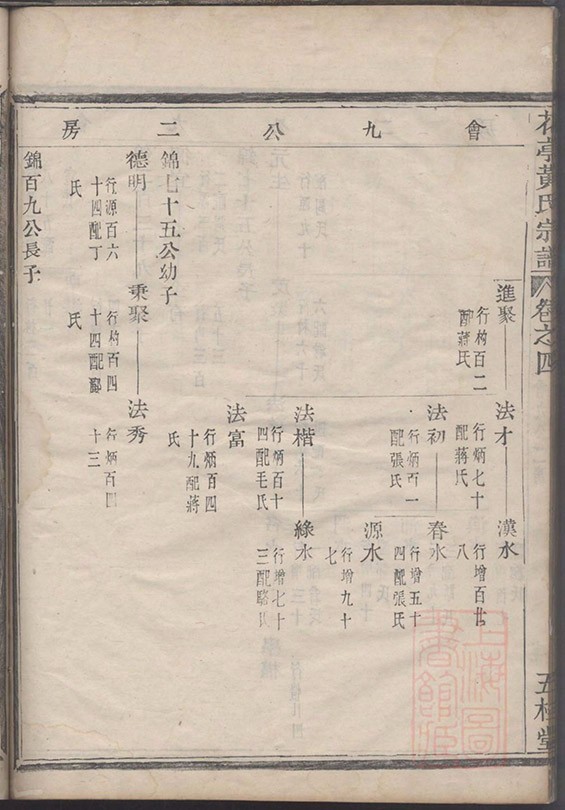 花亭黃氏宗譜 卷之四
五桂堂
會九公二房
進聚
行枃百二
配蔣氏
法才
行炳七十
配蔣氏
漢水
行增百廿
八
法初
行炳百一
配張氏
春水
行增五十
四配張氏
源水
行增九十
七
法楷
行炳百十
四配毛氏
綠水
行增七十
三配駱氏
法富
行炳百四
十九配蔣
氏
錦七十五公幼子
德明
行源百六
十四配丁
氏
秉聚
行枃百四
十四配酈
氏
法秀
行炳百四
十三
錦百九公長子
上海圖書館藏